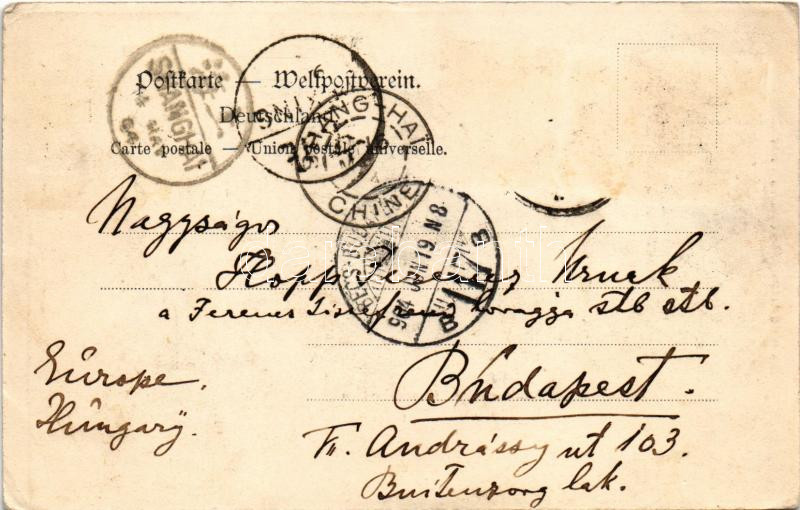 Postkarte — Weltpostverein.
Deutschland
Carte postale — Union postale universelle.
SHANGHAI
SHANGHAI
CHINE
904 JUN 19 N 8
Nagyságos
Hopp Ferencz Urnak
a Ferencz József rend lovagja stb stb.
Europe.
Hungary.
Budapest.
VI. Andrássy ut 103.
Buitenzorg lak.